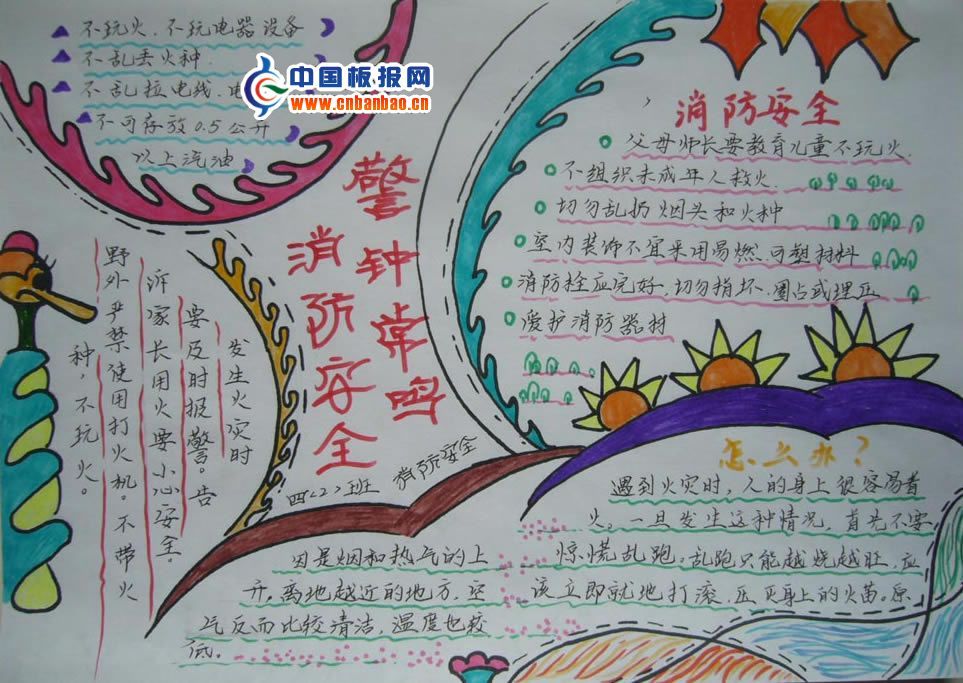 不玩火、不玩电器设备
不乱丢火种.
不乱拉电线、电
不可存放0.5公升
以上汽油
中国板报网
www.cnbanbao.cn
警钟常鸣
消防安全
消防安全
父母师长要教育儿童不玩火.
不组织未成年人救火.
切勿乱扔烟头和火种
室内装饰不宜采用易燃、可塑材料
消防栓应完好,切勿损坏、圈占或埋压
爱护消防器材
发生火灾时
要及时报警。告
诉家长用火要小心安全。
野外严禁使用打火机。不带火
种,不玩火。
四<2>班
消防安全
怎么办?
遇到火灾时,人的身上很容易着
火。一旦发生这种情况,首先不要
惊慌乱跑。乱跑只能越烧越旺,应
该立即就地打滚,压灭身上的火苗。原
因是烟和热气的上
升,离地越近的地方,空
气反而比较清洁,温度也较
低。